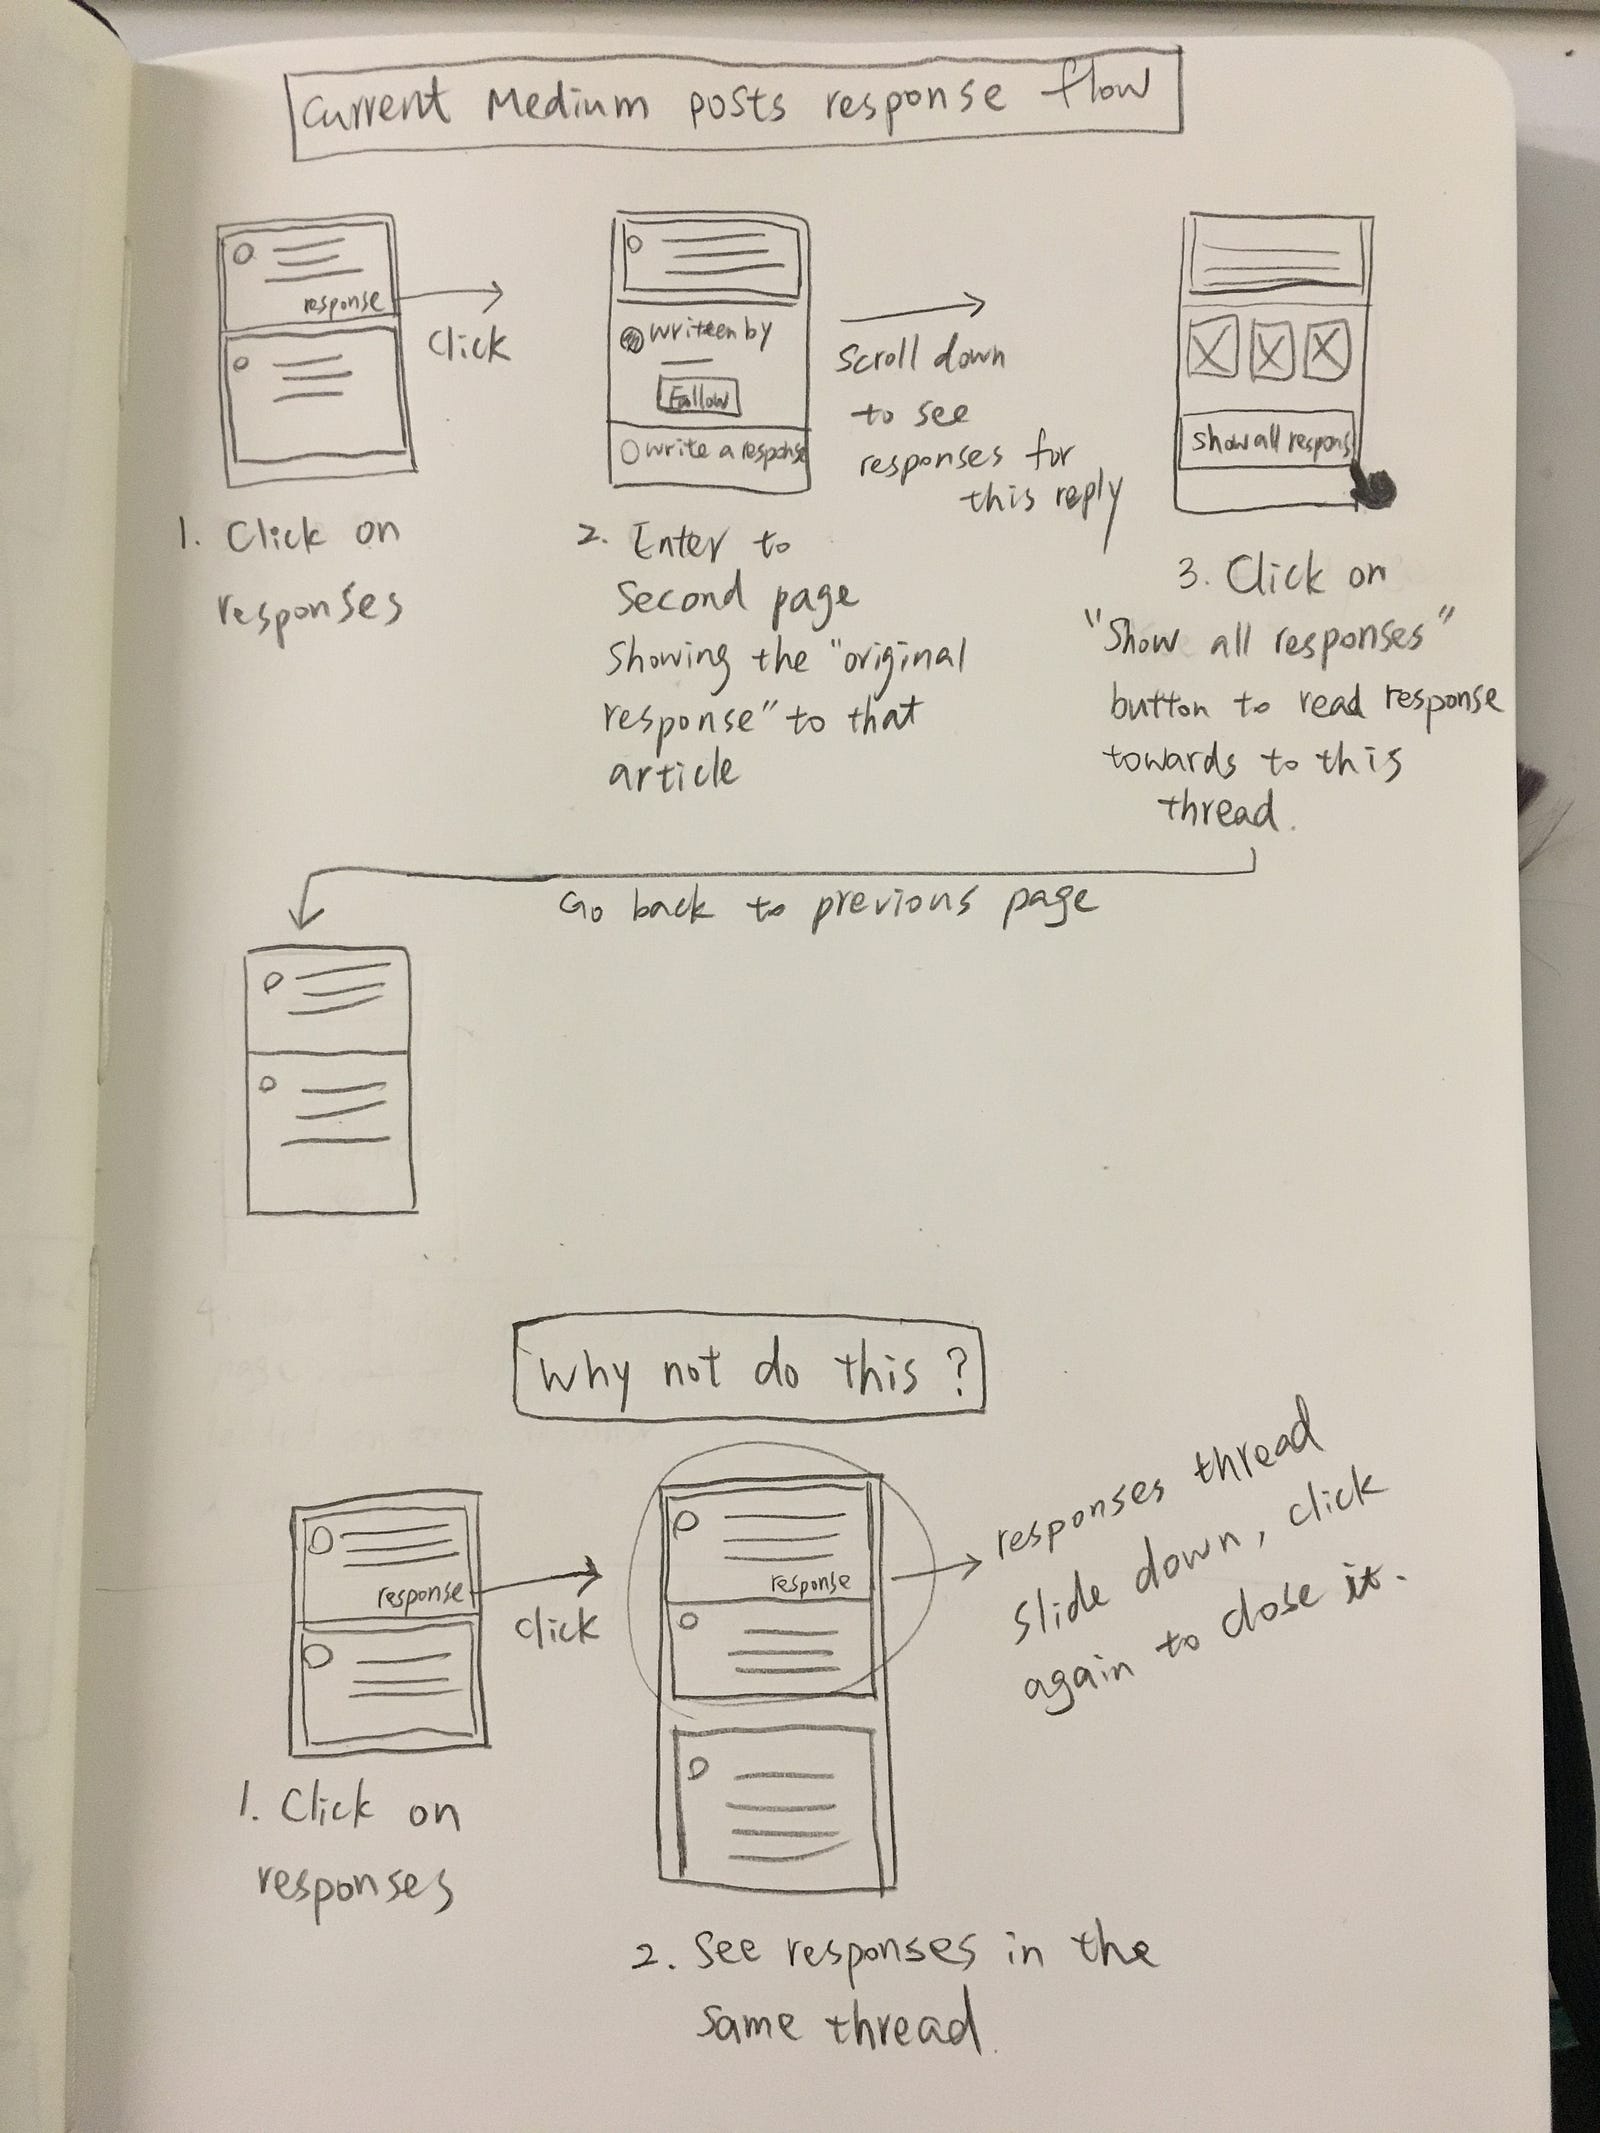 Current Medium posts response flow
response
Click
writteen by
Follow
write a response
Scroll down
to see
responses for
this reply
Show all respons
1. Click on
responses
2. Enter to
Second page
showing the "original
response" to that
article
3. Click on
"Show all responses"
button to read response
towards to this
thread.
Go back to previous page
Why not do this?
response
Click
response
responses thread
slide down, click
again to close it.
1. Click on
responses
2. See responses in the
same thread.